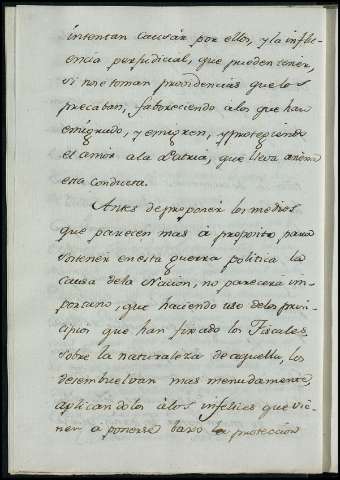 intentan causar por ellos, y la influ-
encia perjudicial, que pueden tener,
si no se toman providencias que los
precaban, faboreciendo a los que han
emigrado, y emigren, y protegiendo
el amor a la Patria, que lleva
esta conducta.
Antes de proponer los medios
que parecen mas á proposito para
sostener en esta guerra politica la
causa de la Nacion, no parecerá im-
portuno, que haciendo uso de los prin-
cipios que han fixado los Fiscales
sobre la naturaleza de aquella, los
desembuelvan mas menudamente,
aplicandolos à los infelices que vie-
nen a ponerse baxo la proteccion